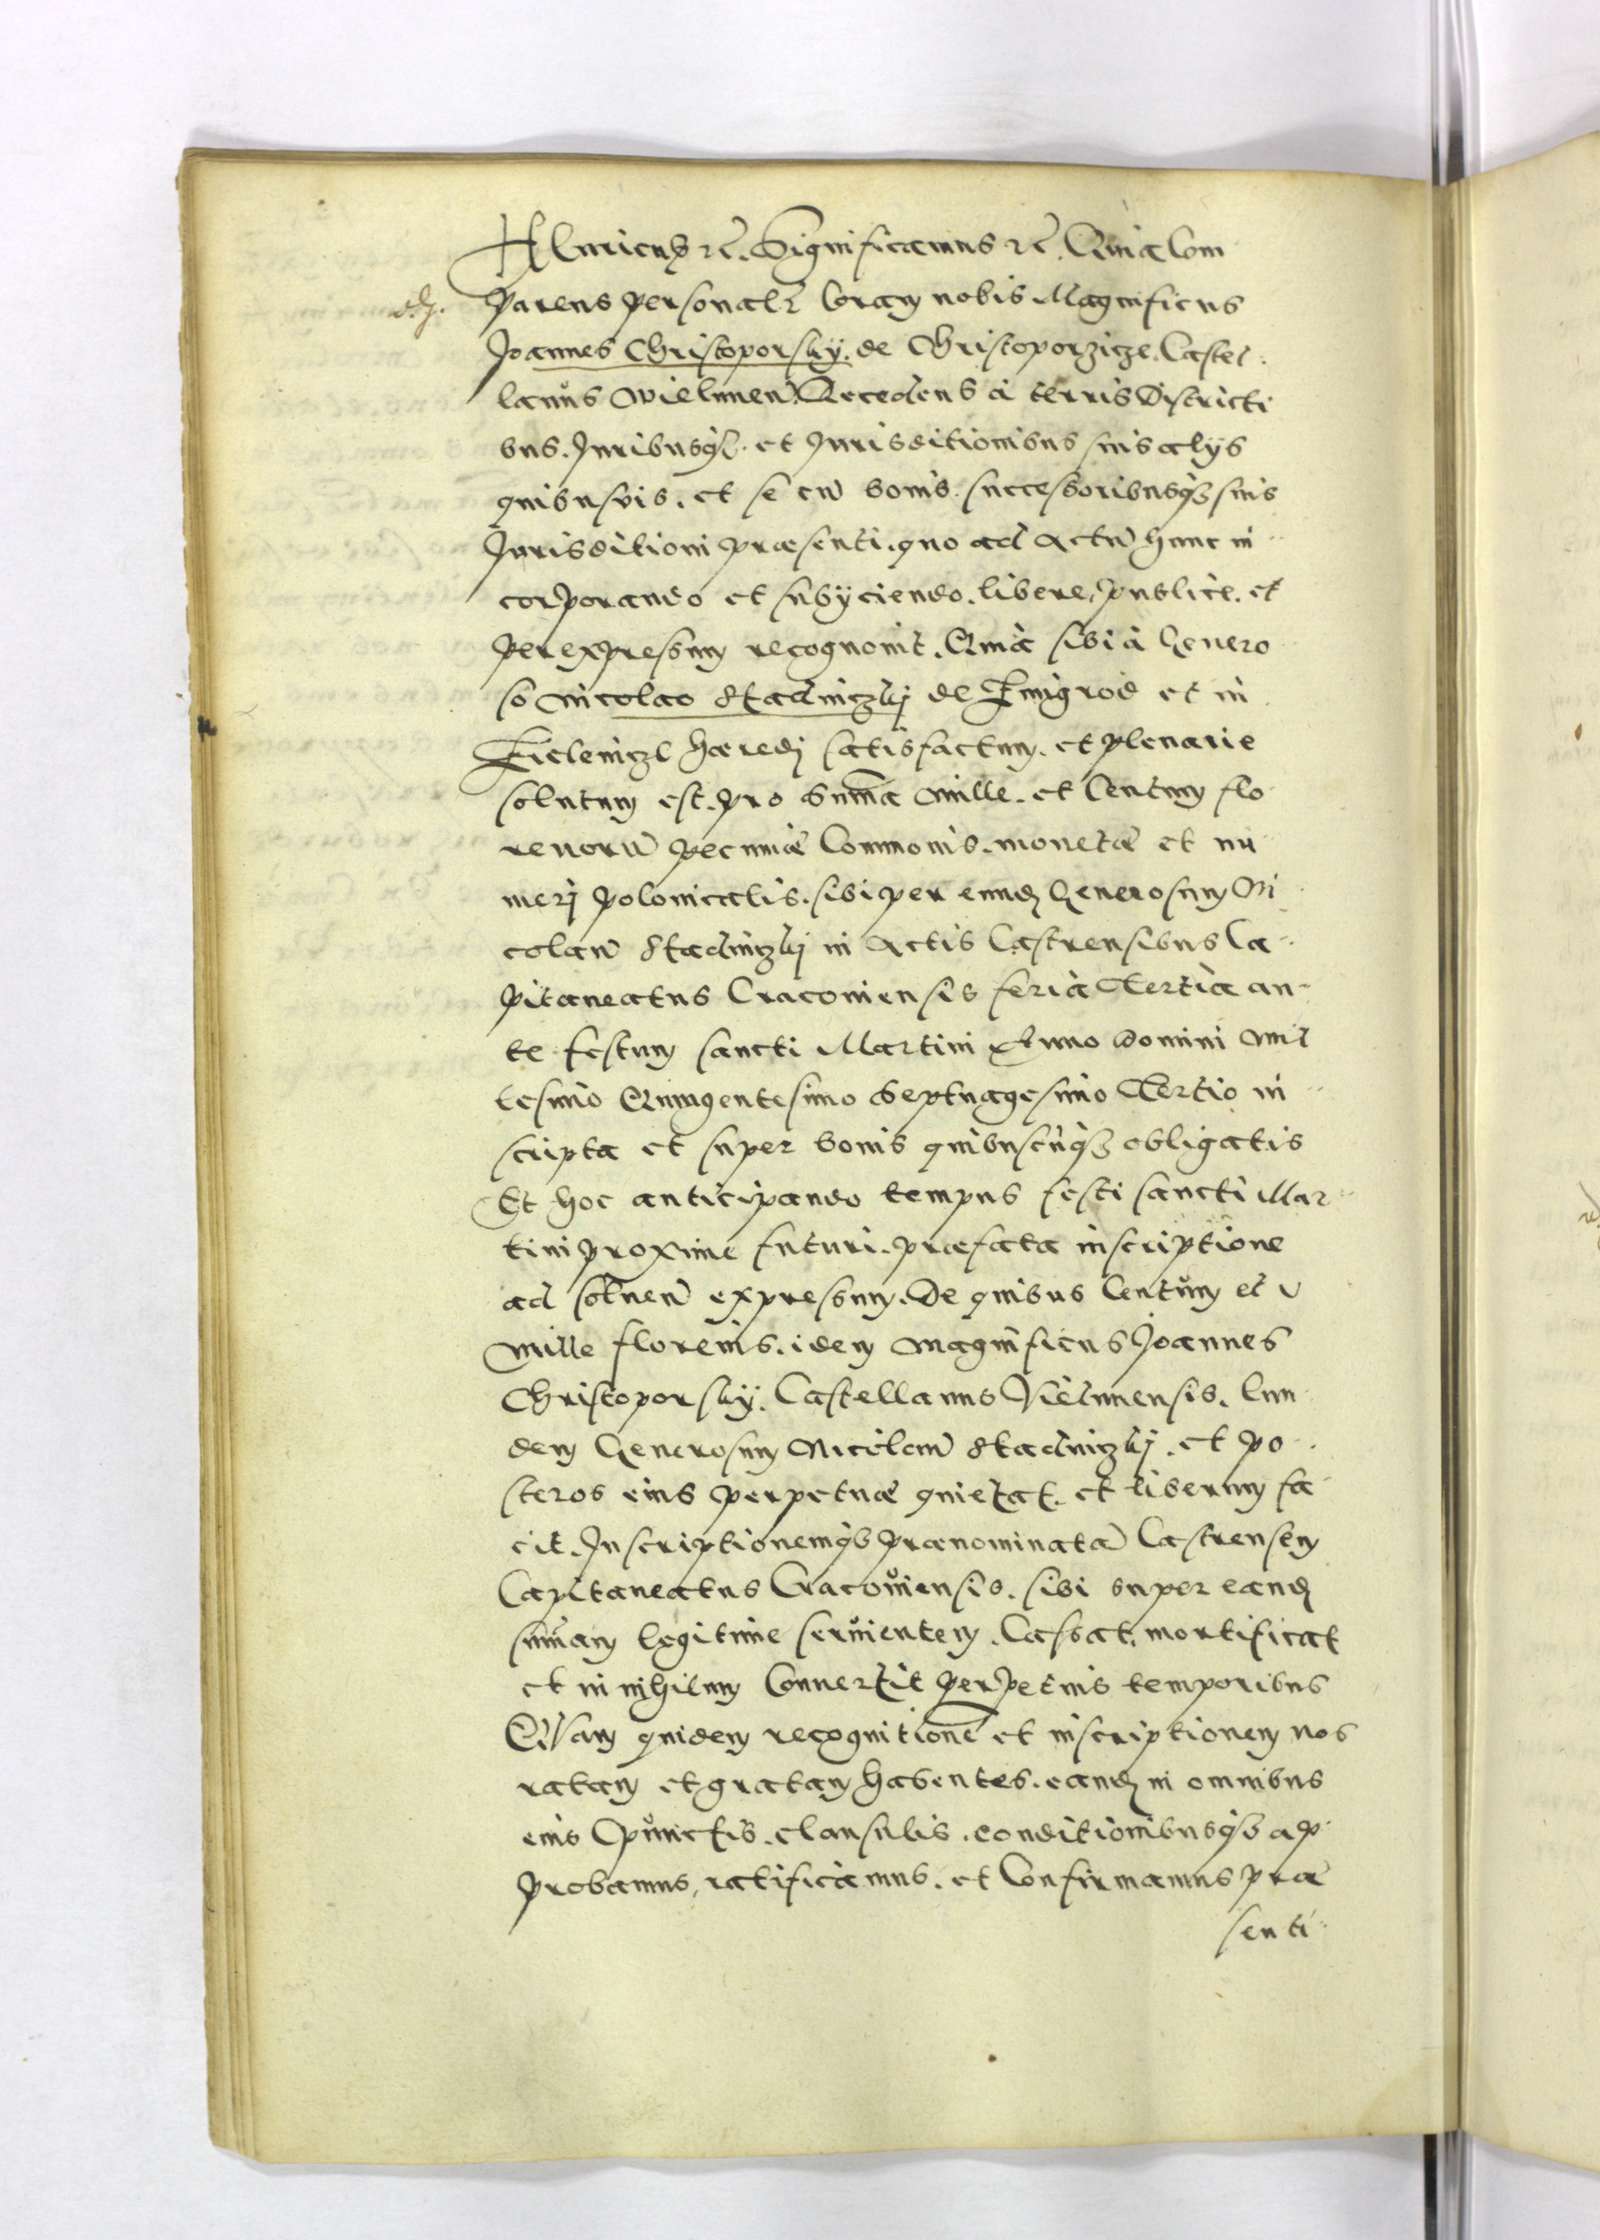 Henricus etc. Significamus etc. Quia Com
parens personalr Coram nobis Magnificus
Joannes Christoporsky. de Christoporzicze. Castel
lanus Wielunen. Recedens à terris Districti
bus. Juribusq. et Jurisditionibus suis alijs
quibusvis. et se cu bonis successoribusq suis
Jurisditioni præsenti. quo ad Actu hunc in
corporando et subijciendo. libere, publice. et
per expressum recognovit. Quia sibi à Genero
so Nicolao Stadniczkj de Zmigrod et in
hæredj satisfactum. et plenarie
solutum est. pro Suma Mille. et Centum flo
renoru pecuniæ Communis. monetæ et nu
merj polonicalis. sibi per eund Generosum Ni
colau Stadniczkj in Actis Castrensibus Ca
pitaneatus Cracoviensis feria Tertia an
te festum sancti Martini Anno Domini Mil
lesimo Quingentesimo Septuagesimo Tertio in
scripta et super bonis quibuscuq obligatis
Et hoc anticipando tempus festi sancti Mar
tini proxime futuri. præfata inscriptione
ad solven expressum. De quibus Centum et
Mille florenis. idem Magnificus Joannes
Christoporsky. Castellanus Vielunensis. Eun
dem Generosum Nicolau Stadniczkj. et po
steros eius perpetuæ quietat. et liberum fa
cit. Inscriptionemq prænominata Castrensem
Capitaneatus Cracoviensis. sibi super eand
sumam legitime servientem. Cassat, mortificat
et in nihilum Convertit perpetuis temporibus
Quam quidem recognitione et inscriptionem nos
ratam et gratam habentes. eand in omnibus
eius punctis. clausulis. conditionibusq ap
probamus, ratificamus. et Confirmamus præ
senti